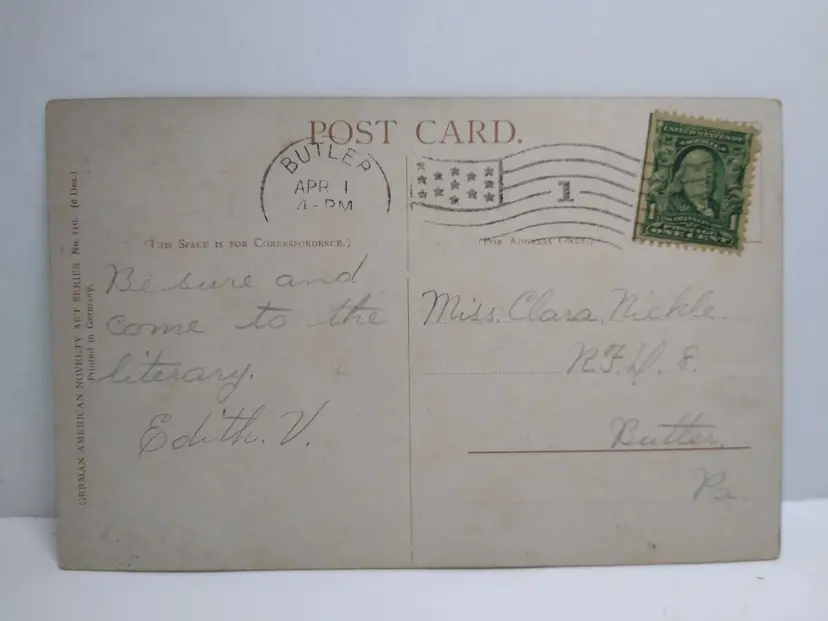 POST CARD.
BUTLER
APR 1
4-PM
1
1
1
(THIS SPACE IS FOR CORRESPONDENCE.)
(FOR ADDRESS ONLY.)
Be sure and
come to the
literary.
Edith. V.
Miss. Clara. Nickle.
R.F.D. 8.
Butler,
Pa.
GERMAN AMERICAN NOVELTY ART SERIES No. 710. (6 Des.)
Printed in Germany.